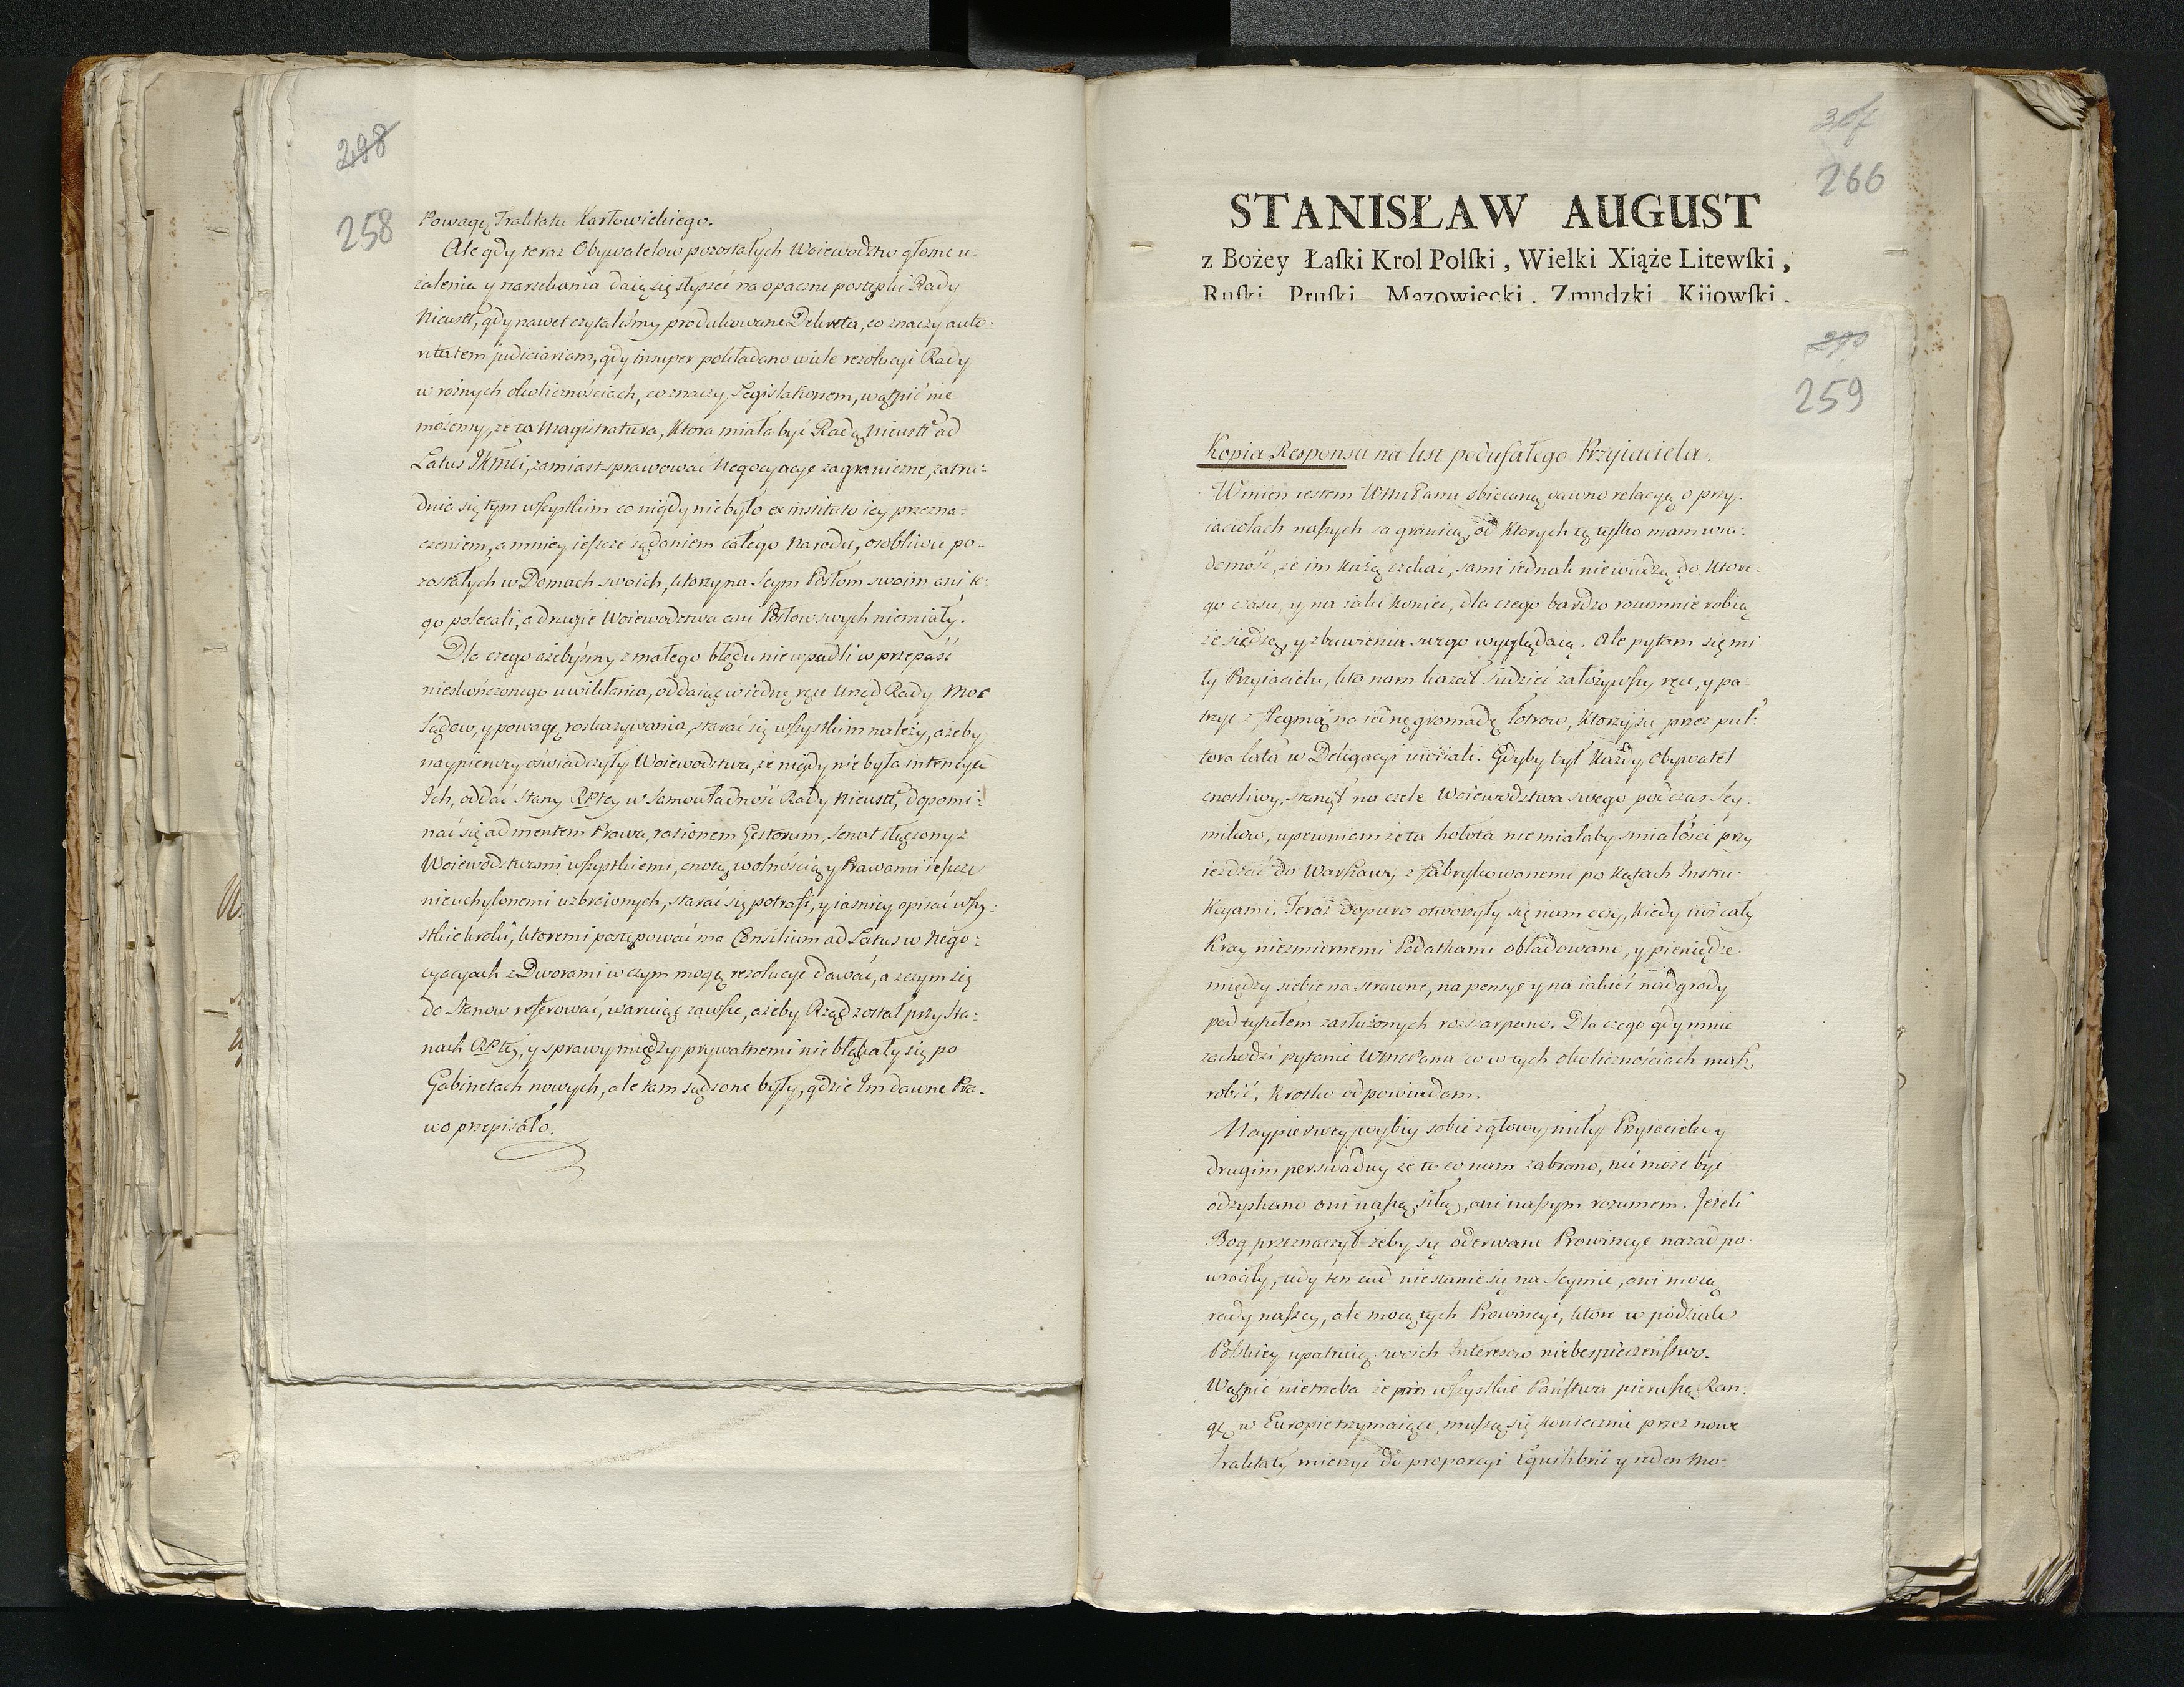 298
258
Powagę Traktatu Karłowickiego.
Ale gdy teraz Obywatelow pozostałych Woiewodztw głosne u-
żalenia y narzekania daią się słyszéć na opaczne postępki Rady
Nieustt, gdy nawet czytaliśmy produkowane Dekreta, co znaczy auto-
ritatem judiciariam, gdy insuper pokładano wiele rezolucyi Rady
w rożnych okolicznościach, co znaczy Legislationem, wątpić nie
możemy, że ta Magistratura, ktora miała być Radą Nieustt ad
Latus JKMci, zamiast sprawować Negocyacye zagraniczne, zatru-
dnia się tym wszystkim co nigdy nie było ex instituto iey przezna-
czeniem, a mniey ieszcze żądaniem całego Narodu, osobliwie po-
zostałych w Domach swoich, ktorzy na Seym Posłom swoim ani te-
go polecali, a drugie Woiewodztwa ani Posłow swych niemiały.
Dla czego ażebyśmy z małego błędu nie wpadli w przepaść
nieskończonego uwikłania, oddaiąc w iedne ręce Urząd Rady Moc
Sądow, y powagę roskazywania, starać się wszystkim należy, ażeby
naypierwey oświadczyły Woiewodztwa, że nigdy nie była intencya
Ich, oddać Stany Rzptey w Samowładność Rady Nieustt, dopomi-
nać się ad mentem Prawa, rationem Gestorum, Senat złączony z
Woiewodztwami wszystkiemi, cnotą, wolnością y Prawami ieszcze
nieuchylonemi uzbroionych, starać się potrafi, y iasniey opisać wszy-
stkie kroki, ktoremi postępować ma Consilium ad Latus w Nego-
cyacyach z Dworami w czym mogą rezolucye dawać, a z czym się
do Stanow referować, waruiąc zawsze, ażeby Rząd został przy Sta-
nach Rzptey, y sprawy między prywatnemi nie błąkały się po
Gabinetach nowych, ale tam sądzone były, gdzie Im dawne Pra-
wo przepisało.
307
266
STANISŁAW AUGUST
z Bożey Łaſki Krol Polſki, Wielki Xiąże Litewſki,
Ruſki Pruſki Mazowiecki, Zmudzki Kijowſki,
290
259
Kopia Responsu na list poufałego Przyiaciela.
Winien iestem WMM Panu obiecaną dawno relacyą o przy-
iaciołach naszych za granicą, od ktorych tę tylko mam wia-
domość, że im każą czekać, sami iednak niewiedzą do ktore-
go czasu, y na iaki koniec, dla czego bardzo rozumnie robią
że siedzą, y zbawienia swego wyglądaią. Ale pytam się mi-
ły Przyiacielu, kto nam kazał siedzieć założywszy ręce, y pa-
trzyć z flegmą na iednę gromadę łotrow, ktorzy się przez pul-
tora lata w Delegacyi uwiiali. Gdyby był każdy Obywatel
cnotliwy, stanął na czele Woiewodztwa swego podczas Sey-
mikow, upewniam że ta hołota nie miałaby smiałości przy
ieżdżać do Warszawy z fabrykowanemi po kątach Instru-
kcyami. Teraz dopiero otworzyły się nam oczy, kiedy iuż cały
Kray niezmiernemi Podatkami obładowano, y pieniądze
między siebie na strawne, na pensye y na iakieś nadgrody
pod tytułem zasłużonych rozszarpano. Dla czego gdy mnie
zachodzi pytanie WMM Pana co w tych okolicznościach masz
robić, krotko odpowiadam.
Naypierwey wybiy sobie z głowy miły Przyiacielu y
drugim perswaduy że to co nam zabrano, nie może być
odzyskano ani naszą siłą, ani naszym rozumem. Jeżeli
Bog przeznaczył żeby się oderwane Prowincye nazad po-
wrociły, tedy ten cud niestanie się na Seymie, ani mocą
rady naszey, ale mocą tych Prowincyi, ktore w podziale
Polskiey upatruią swoich Interesow niebespieczeństwo.
Wątpić nietrzeba że wszystkie Państwa pierwszą Ran-
gę w Europie trzymaiące, muszą się koniecznie przez nowe
Traktaty mierzyć do proporcyi Equilibrii y ieden Mo-